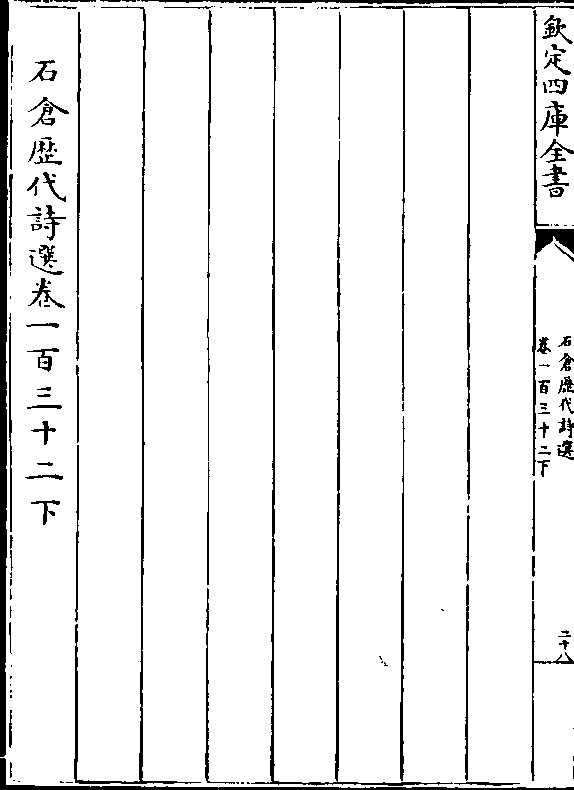 欽定四庫全書
石倉歷代詩選
卷一百三十二下
二十八
石倉歷代詩選卷一百三十二下